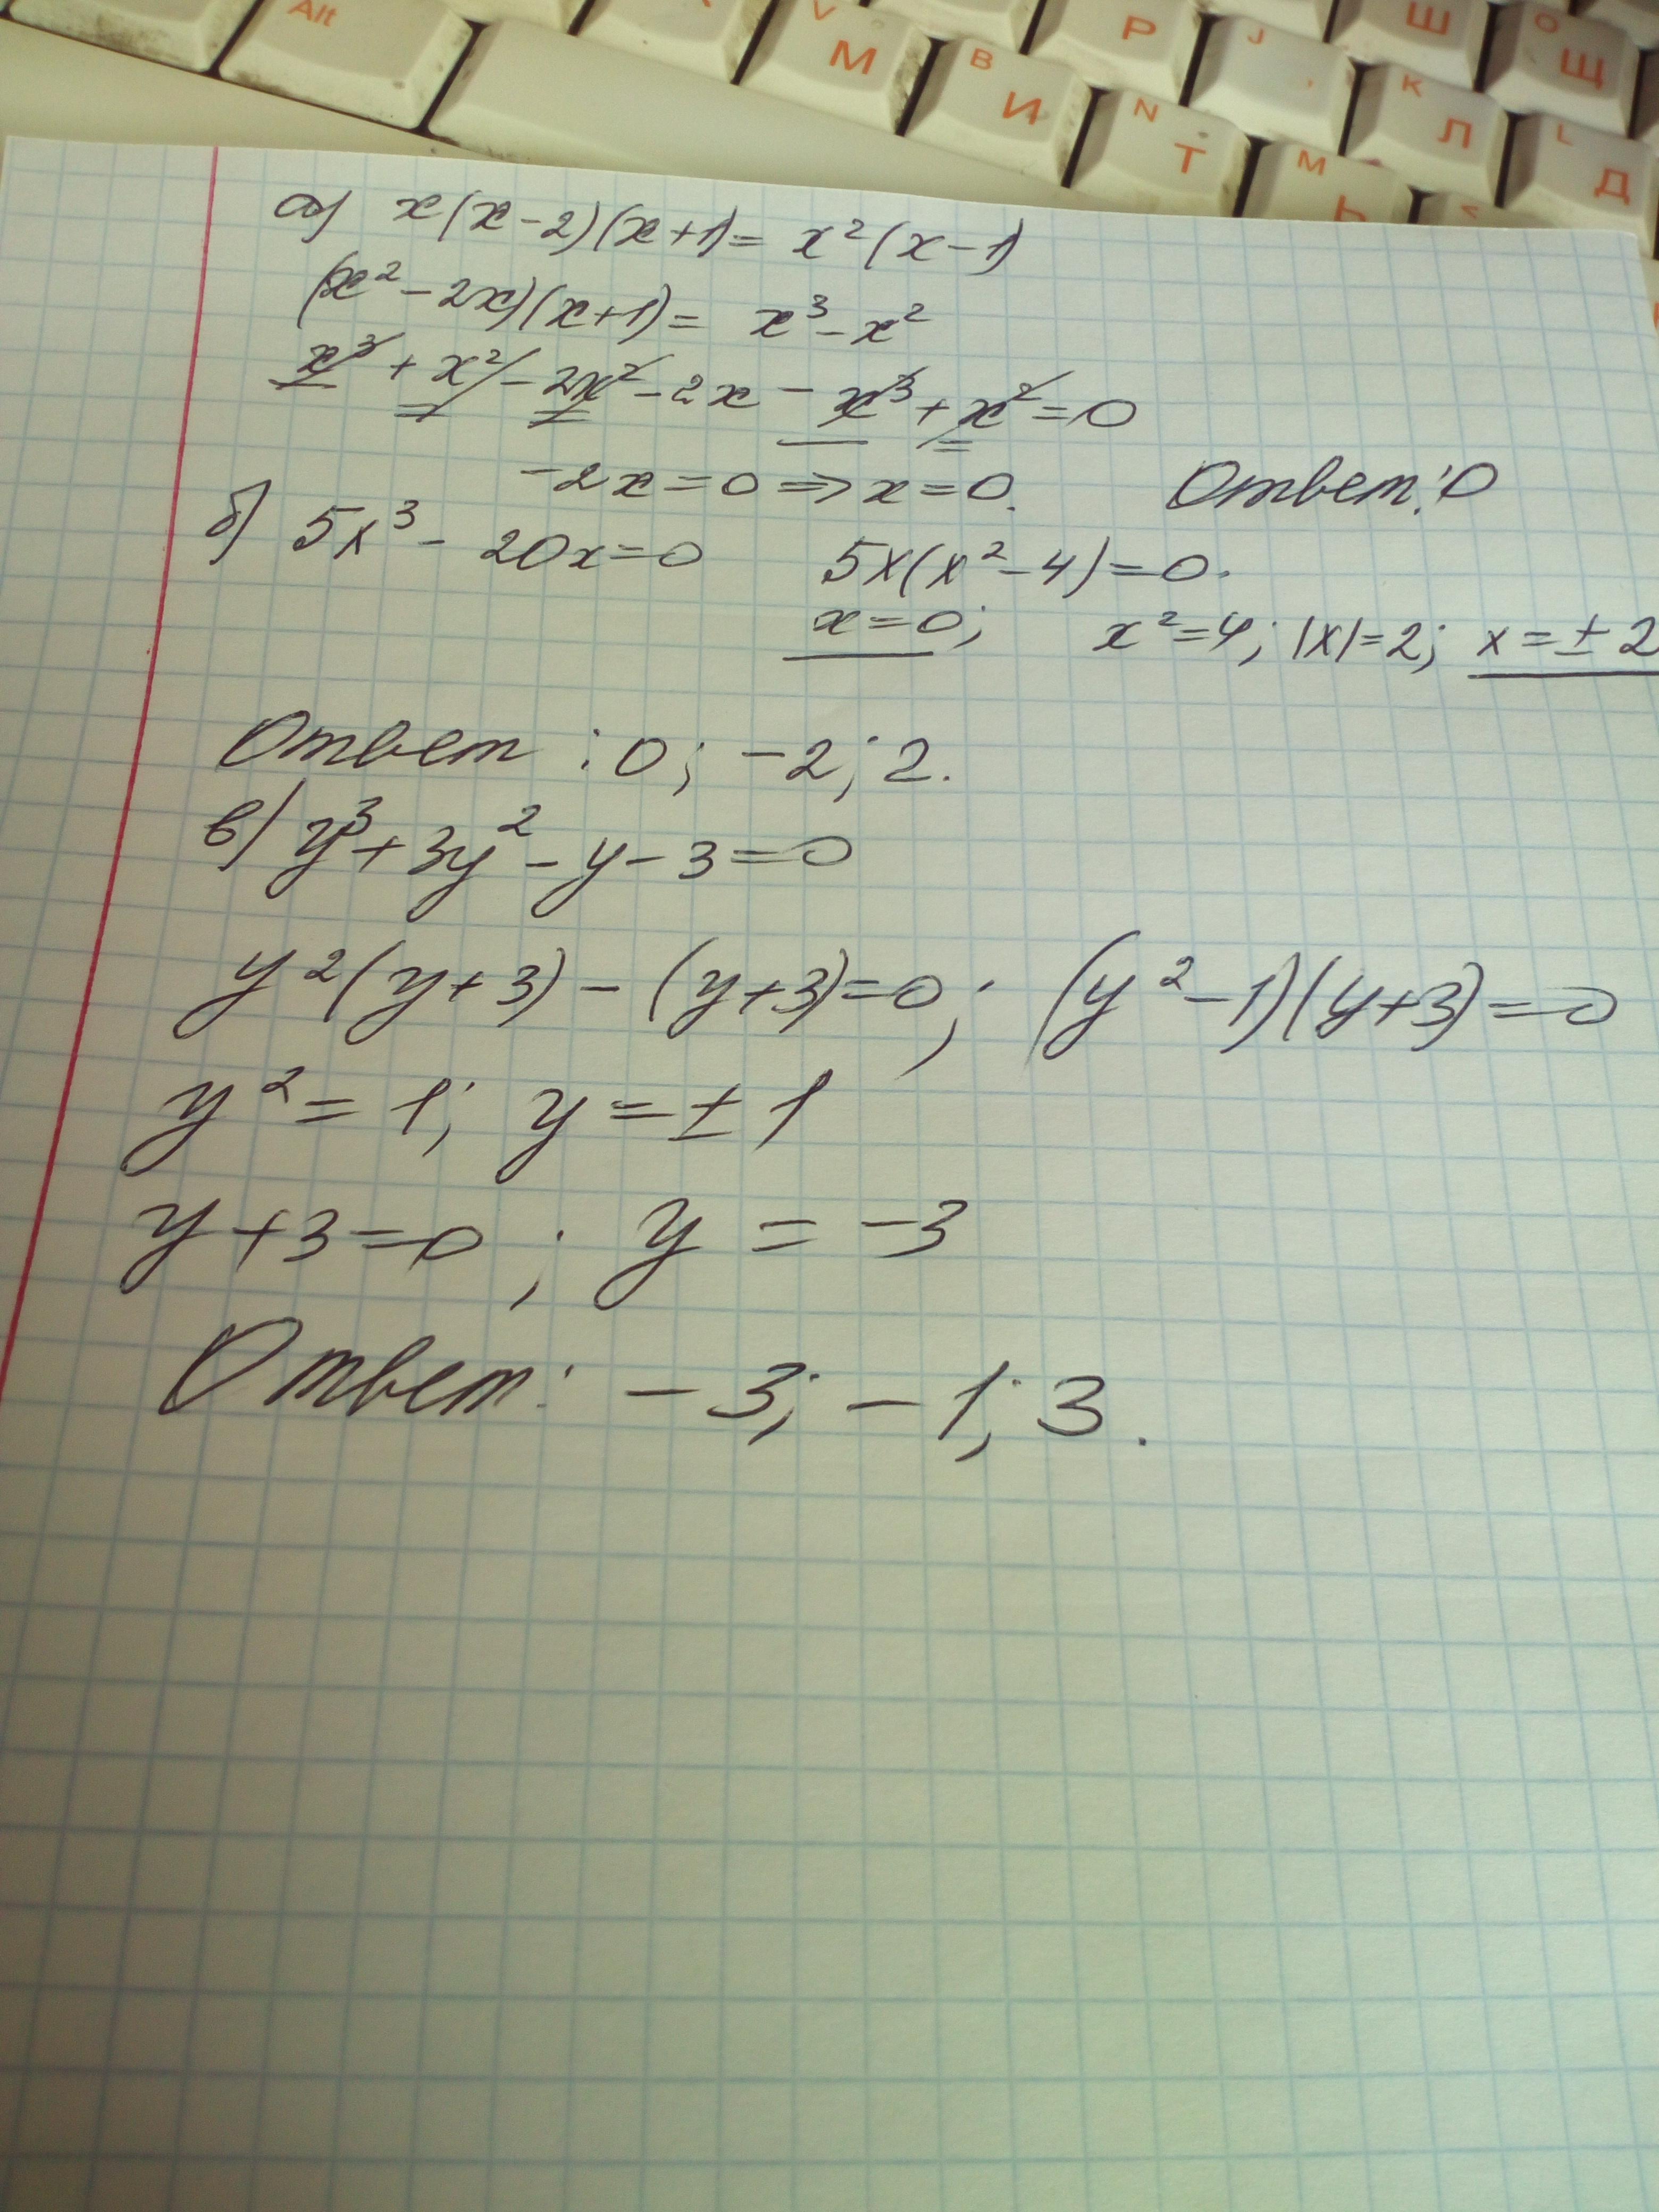 Alt
V М
B И
Р
N Т
J
Ш
K Л
O Щ
M Ь
L Д
а) x(x-2)(x+1) = x²(x-1)
(x²-2x)(x+1) = x³-x²
x³ + x² - 2x² - 2x - x³ + x² = 0
-2x=0 => x=0. Ответ: 0
б) 5x³ - 20x=0 5x(x²-4)=0.
x=0; x²=4; |x|=2; x=±2
Ответ: 0; -2; 2.
в) y³+3y²-y-3=0
y²(y+3)-(y+3)=0; (y²-1)(y+3)=0
y²=1; y=±1
y+3=0; y=-3
Ответ: -3; -1; 3.